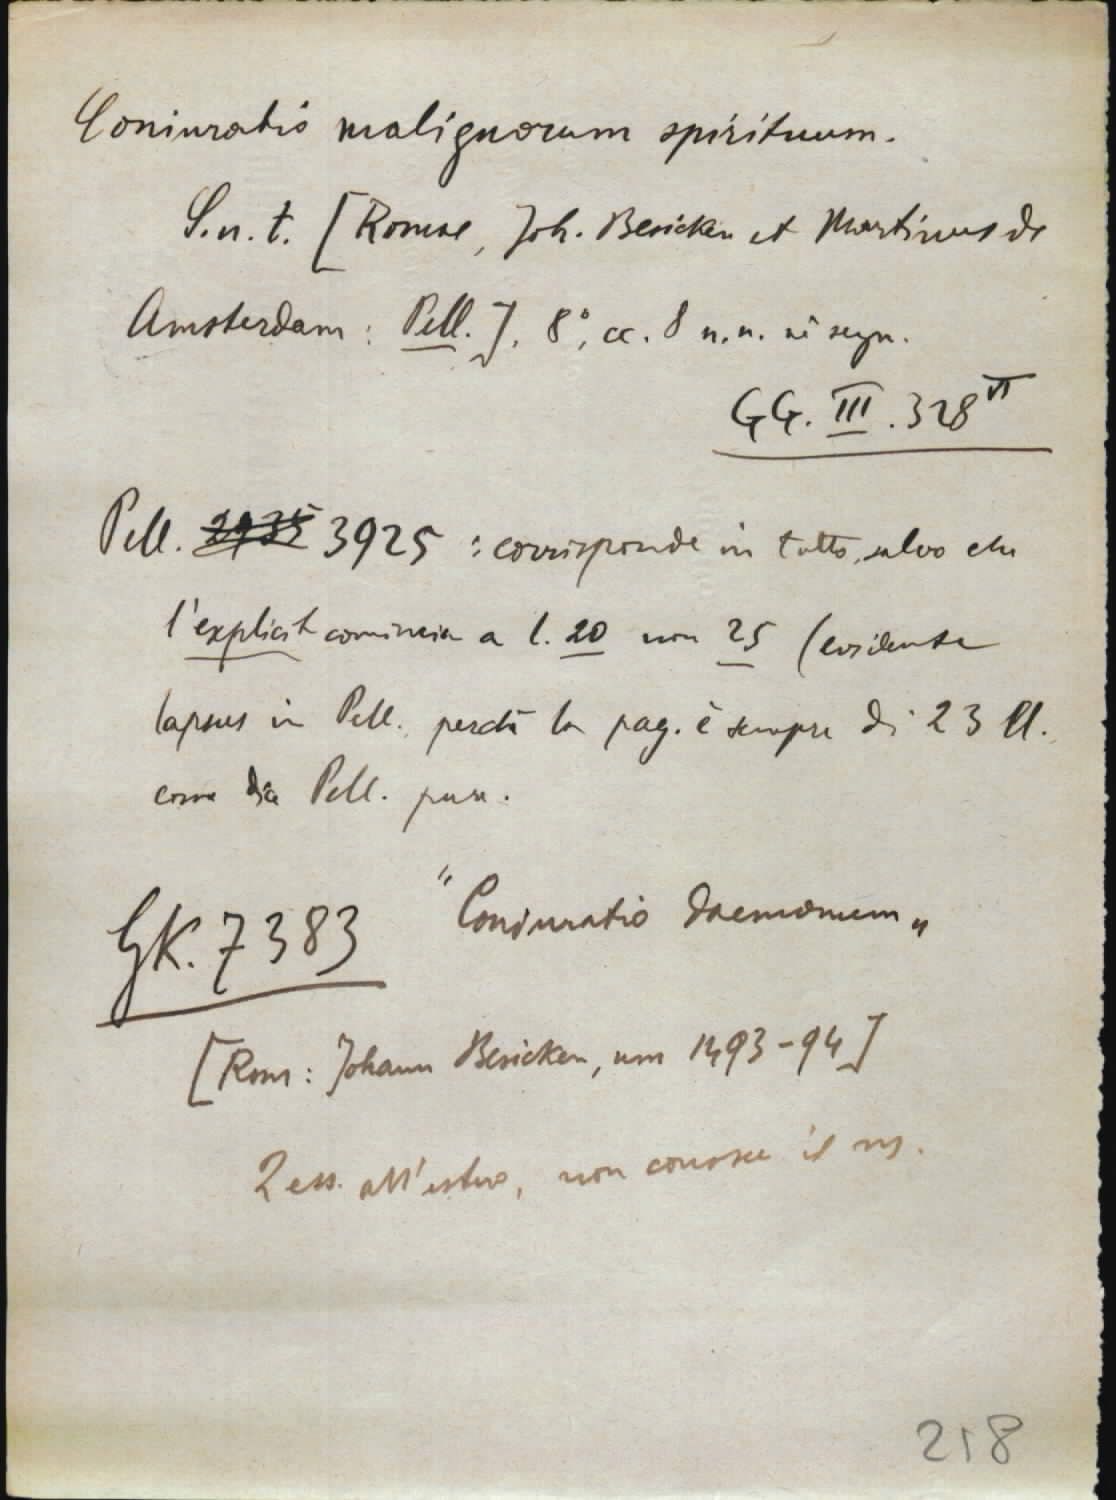 Coniuratio malignorum spirituum.
S. n. t. [Romae, Joh. Besicken et Martinus de
Amsterdam: Pell.]. 8°, cc. 8 n. n. né segn.
GG. III. 328 VI
Pell. 2935 3925 : corrisponde in tutto, salvo che
l'explicit comincia a l. 20 non 25 (evidente
lapsus in Pell., perchè la pag. è sempre di 23 ll.
come dice Pell. pure.
GK. 7383 "Coniuratio daemonum„
[Rom: Johann Besicken, um 1493-94]
2 ess. all'estero, non conosce il ns.
218